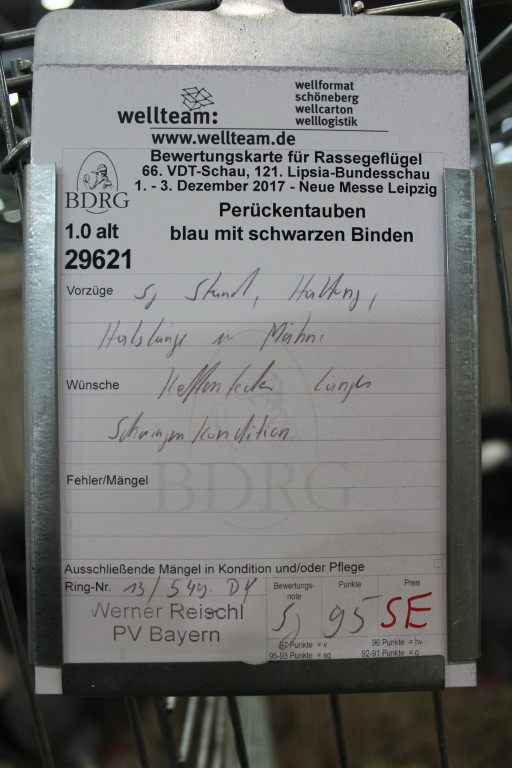 wellteam:
wellformat
schöneberg
wellcarton
welllogistik
www.wellteam.de
BDRG
Bewertungskarte für Rassegeflügel
66. VDT-Schau, 121. Lipsia-Bundesschau
1. - 3. Dezember 2017 - Neue Messe Leipzig
Perückentauben
1.0 alt
blau mit schwarzen Binden
29621
Vorzüge sg Stand, Haltung,
Halslänge u Mähne
Wünsche Kettenfeder länger
Schwingenkondition
Fehler/Mängel
BDRG
Ausschließende Mängel in Kondition und/oder Pflege
Ring-Nr. 13/ 549.
Werner Reischl
PV Bayern
Bewertungs-
note
sg
Punkte
95
Preis
SE
97 Punkte = v
96 Punkte = hv
95-93 Punkte = sg
92-91 Punkte = g